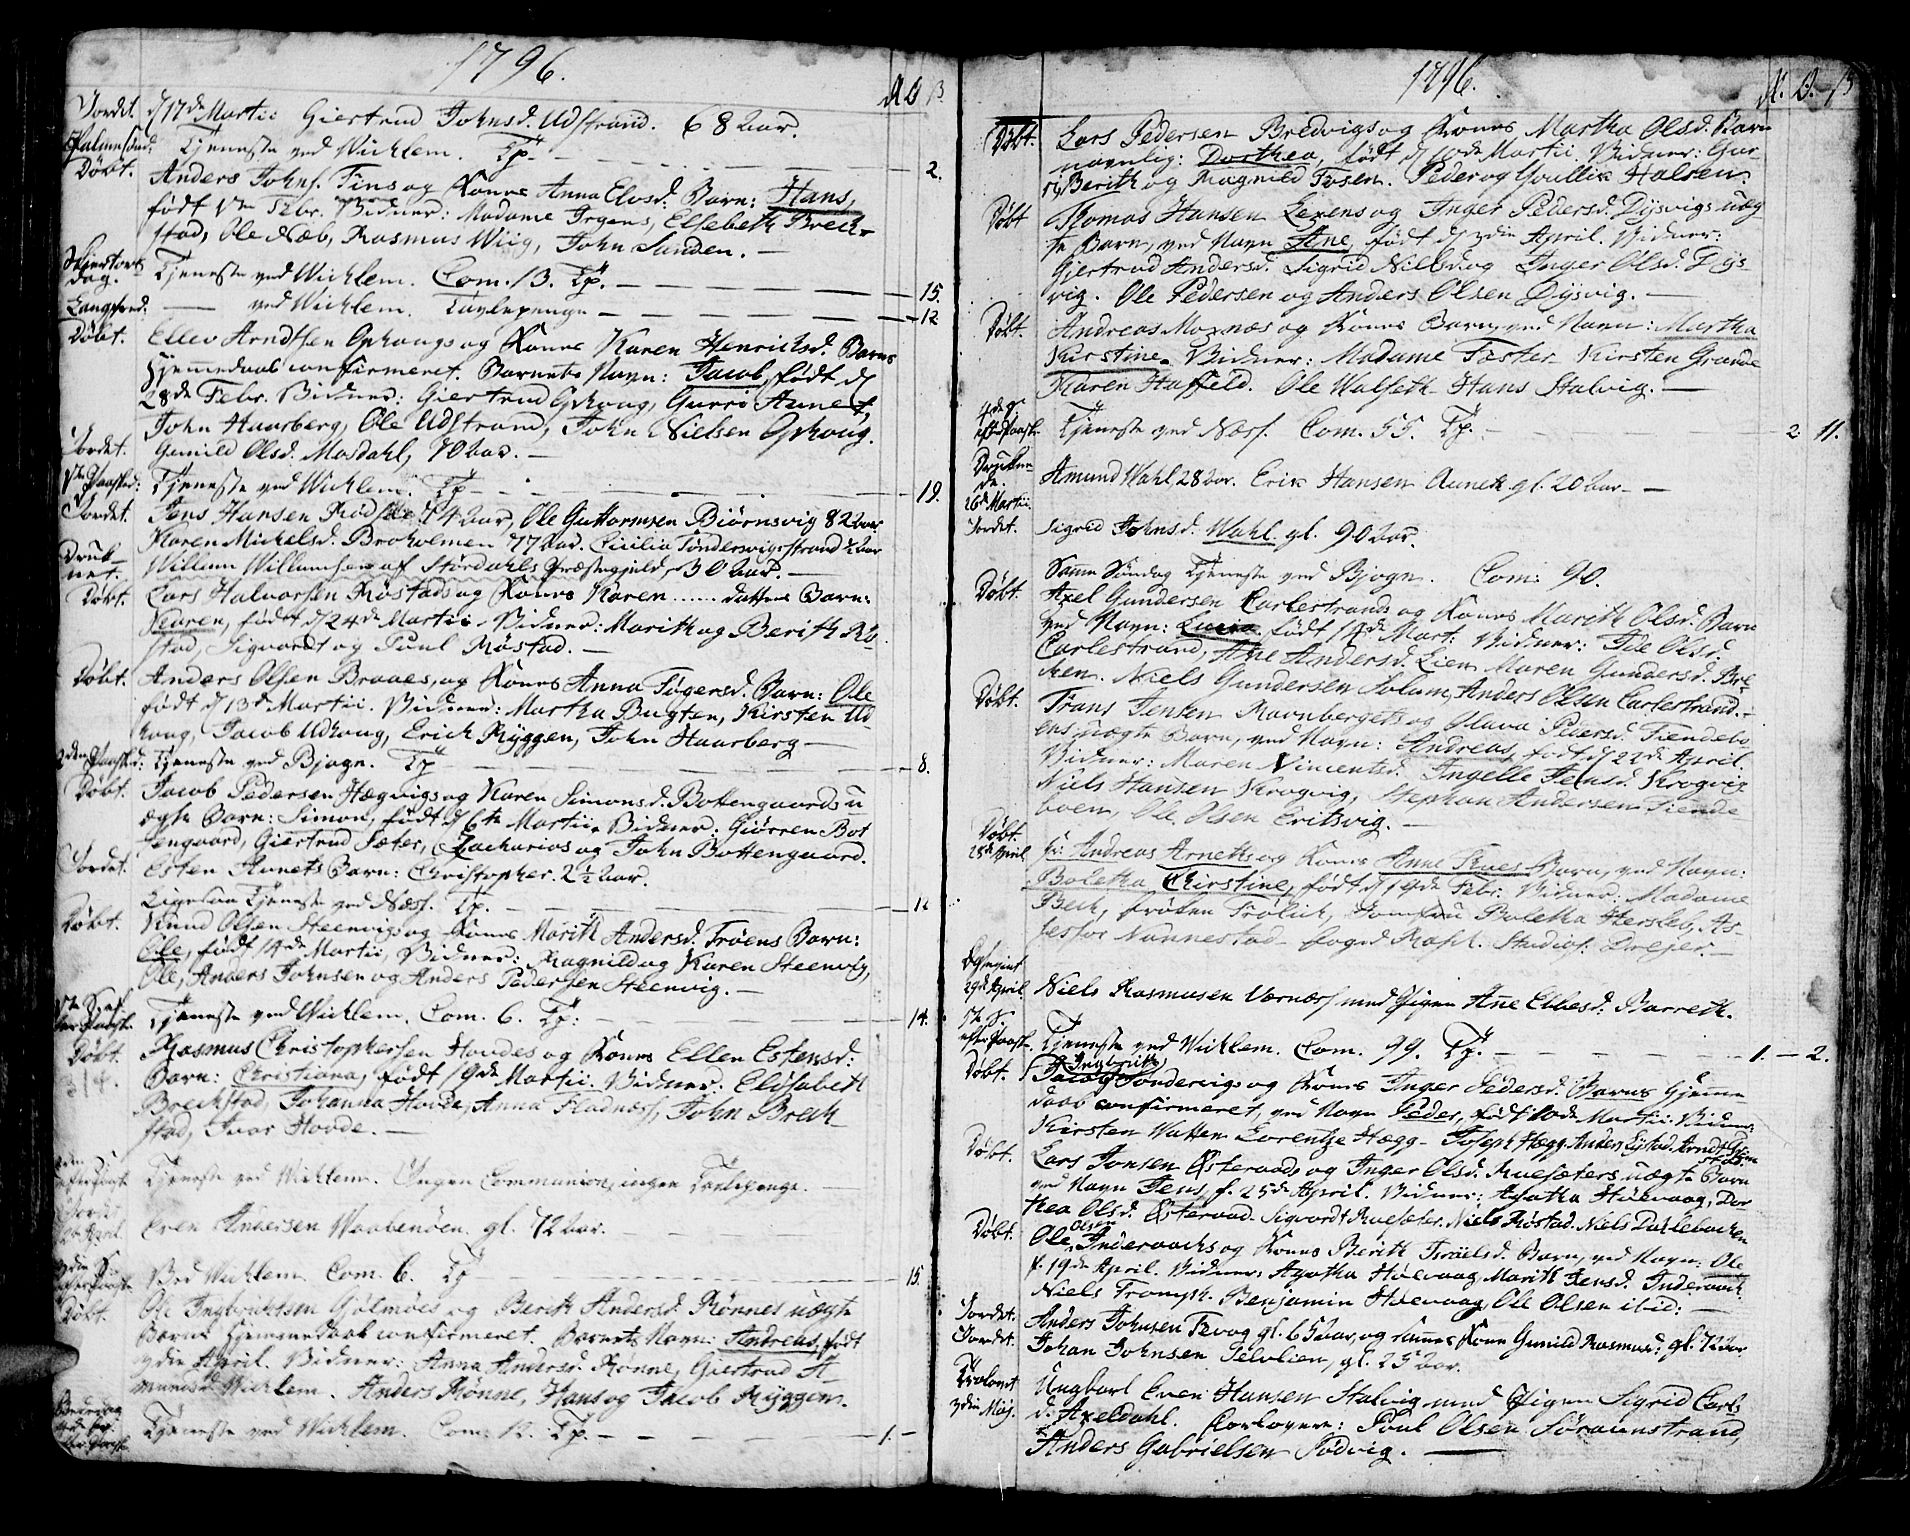 1796.
M O B
Jordet. d 17de Martii Giertrud Johnsd. Udstrand. 68 Aar.
Palmesønd: Tjeneste ved Wicklem. Tp. 2.
Døbt. Anders Johns. Fins og Kones Anna Elvsd. Barn: Hans,
født 1ste Febr. Vidner: Madame Irgens, Elsebeth Breck-
stad, Ole Næb, Rasmus Wiig, John Sanden. —
Skiertors
dag. Tjeneste ved Wicklem. Com. 13. Tp. 15.
Langfred. — ved Wicklem. Tavlepenge — 12
Døbt. Ellev Arndtsen Ophougs og Kones Karen Henrichsd. Barns
Hjemmedaab confirmeret. Barnets Navn: Jacob, født d
28de Febr. Vidner: Giertrud Ophoug, Gurri Aunet,
John Haarberg, Ole Udstrand, John Nielsen Ophoug.
Jordet. Gunild Olsd. Mosdahl, 70 Aar. —
1ste Paasked: Tjeneste ved Wicklem. Tp. 19.
Jordet. Jens Hansen 74 Aar, Ole Guttormsen Biørnsvig 82 Aar
Karen Mickelsd. Broholmen 77 Aar. Cicilia Tøndervigstrand ½ Aar
Druk-
net. Willum Willumsen af Størdahls Præstegjeld, 30 Aar. —
Døbt. Lars Halvorsen Røstads og Kones Karen ...... datters Barn:
Karen, født d 24de Martii. Vidner: Marith og Berith Rø-
stad, Sigvardt og Poul Røstad. —
Døbt. Anders Olsen Braaes, og Kones Anna Tøgersd. Barn: Ole
født d 13de Martii. Vidner: Martha Bugten, Kirsten Ud
houg, Jacob Udhoug, Erich Ryggen, John Haarberg —
2den Paasked: Tjeneste ved Bjogn. Tp 8.
Døbt. Jacob Pedersen Hegvigs og Karen Simonsd. Bottengaards u
ægte Barn: Simon, født d 6te Martii. Vidner: Giørren Bot
tengaard, Giertrud Sæter, Zacharias og John Bottengaard.
Jordet. Esten Aunets Barn: Christopher. 2½ Aar.
Ligesaa Tjeneste ved Næss. Tp. 12
Døbt. Knud Olsen Steenvigs og Kones Marith Andersd. Trøens Barn:
Ole, født 14de Martii, Vidner: Ragnild og Karen Steenvig,
Ole, Anders Johnsen og Anders Pedersen Steenvig. —
Tjeneste ved Wicklem. Com. 6. Tp: 14.
Døbt. Rasmus Christophersen Hovdes og Kones Ellen Estensd:
Barn: Christiana, født 19de Martii. Vidner: Elisabeth
Breckstad, Johanna Hovde, Anna Fladnæss, John Breck
stad, Ivar Hovde. —
Tjeneste ved Wicklem. Ingen Communion, ingen Tavlepenge. —
Jordet
April. Even Andersen Waabenøen. gl. 72 Aar.
Ved Wicklem. Com. 6. Tp 15.
Døbt. Ole Ingbrigtsen Gjølmöes og Berith Andersd. Rønnes uægte
Barns Hjemmedaab confirmeret. Barnets Navn: Andreas, født
April. Vidner: Anna Andersd. Rønne, Giertrud A-
mundsd. Wicklem. Anders Rønne, Hans og Jacob Ryggen.
Tjeneste ved Wicklem. Com. 12. Tp. 1.
1796.
M. O. B
Døbt. Lars Pedersen Bredvigs og Kones Martha Olsd. Barn
navnlig: Dorthea, født d 10de Martii. Vidner: Gur
ri, Berith og Ragnild Fosen. Peder og Gullik Halsen
Døbt Thomas Hansen Lexens og Inger Pedersd. Dysvigs uæg
te Barn, ved Navn Ane, født d 7din April. Vidner:
Gjertrud Andersd. Sigrid Nielsd. og Inger Olsd. Dys
vig. Ole Pedersen og Anders Olsen Dysvig. —
Døbt. Andreas Moxnæs og Kones Barn, ved Navn: Martha
Kirstine. Vidner: Madame Foster Kirsten Grande
Karen Haffeld. Ole Walseth Hans Stalvig. —
Tjeneste ved Næss. Com. 55. Tp. 2. 11.
Drukne-
de.
26de Martii Amund Wahl 28 Aar. Erik Hansen Auneth gl. 20 Aar. —
Jordet. Sigrid Johnsd. Wahl. gl. 90 Aar.
Samme Søndag Tjeneste ved Bjogn. Com: 90.
Døbt. Axel Gundersen Carlestrands og Kones Marith Olsd. Barn
ved Navn: Lucia født 14de Mart. Vidner: Ide Olsd.
Carlestrand, Ane Andersd. Lien Maren Gundersd. Bre
ken. Niels Gundersen Solum, Anders Olsen Carlestrand. —
Døbt. Frans Jensen Ravnbergets og Olava Pedersd. Fiendebo
ens uægte Barn, ved Navn: Andreas, født d 22de April.
Vidner: Maren Vincentsd. Ingelle Jensd. Krogvig
Niels Hansen Krogvig, Stephan Andersen Fiende
boen, Ole Olsen Eritsvig. —
Døbt.
25de April Andreas Arnets og Kones Anne Barn, ved Navn:
Boletha Christine, født d 14de Febr. Vidner: Madame
Bech, frøken Frölich, Jomfru Boletha Hersleb, As-
sessor Nannestad — foged Studios. Drejer. —
29de April. Niels Rasmusen Værnæss med Pigen Ane Ellesd. Barreth.
5te S.
efter Paaske Tjeneste ved Wicklem. Com. 99. Tp. 1. — 2.
Døbt. Ingbrikt Søndervigs og Kones Inger Pedersd. Barns Hjemme
daab confirmeret, ved Navn Peder, født Martii. Vidner:
Kirsten Watten Lorentze Hegg. Joseph Hegg. Anders
Døbt. Lars Jonsen Østeraads og Inger Olsd. Ruesæters uægte Barn
ved Navn Jens, f. 25de April. Vidner: Agatha Høevaag, Dor
thea Olsd. Østeraad. Sigvardt Ruesæter. Niels Røstad. Niels Dallebacken
Døbt. Ole Olsen Inderaachs og Kones Berith Israelsd. Barn, ved Navn: Ole
f. 19de April. Vidner: Agatha Høevaag, Marith Jensd. Inderaach
Niels Tromph. Benjamin Høevaag, Ole Olsen ibid: —
Jordet. Anders Johnsen Tevog gl. 65 Aar, og Kone Gunild Rasmusd: gl. 72 Aar
Jordet. Johan Johnsen Selvlien, gl. 25 Aar.
Trolovet
7din Maj. Ungkarl Even Hansen Stalvig med Pigen Sigrid Carls
d. Axeldahl. Forlovere: Poul Olsen Søraunstrand,
Anders Gabrielsen Sødvig. —